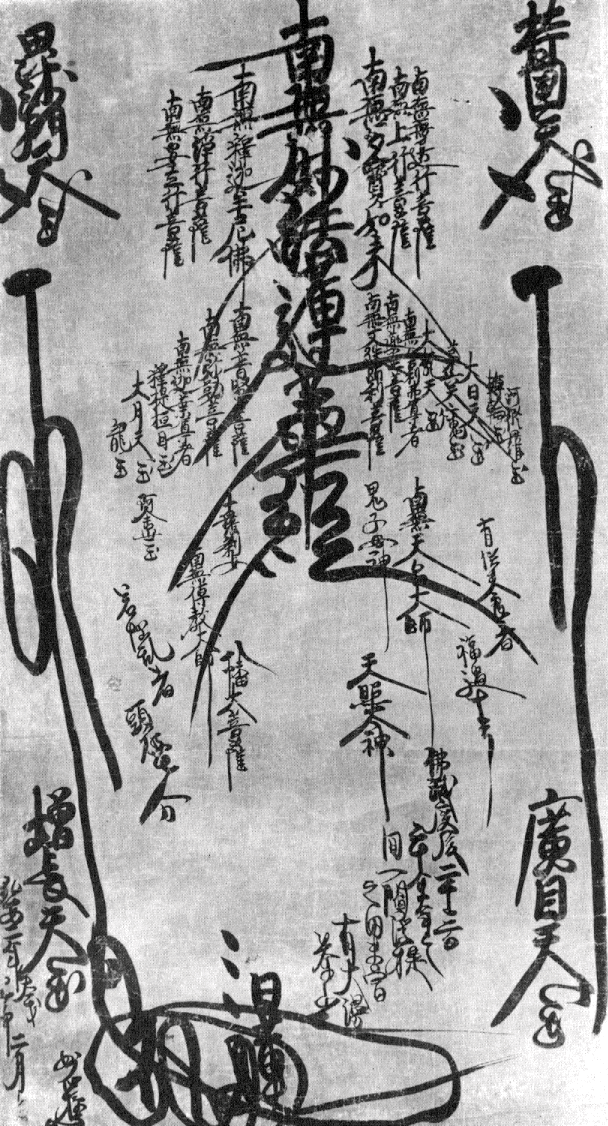 持國天王
南無無邊行菩薩
南無上行菩薩
南無多寶如来
南無妙法蓮華経
南無釋迦牟尼佛
南無浄行菩薩
南無安立行菩薩
毘沙門天王
阿修羅王
轉輪王
大日天王
大梵天王
南無舎利弗尊者
南無薬王菩薩
南無文殊師利菩薩
南無普賢菩薩
南無弥勒菩薩
南無迦葉尊者
釋提桓因王
大月天王
龍王
阿闍世王
有供養者
福過十号
南無天台大師
鬼子母神
十羅刹女
南無傳教大師
若悩乱者
頭破七分
天照大神
八幡大菩薩
佛滅度後二千二百
三十余年之
間一閻浮提
之内未曾
有大漫
荼羅
廣目天王
日蓮
増長天王
弘安二年
二月